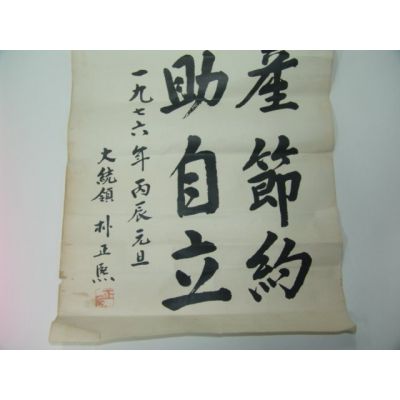 産節約
助自立
一九七六年丙辰元旦
大統領 朴正熙